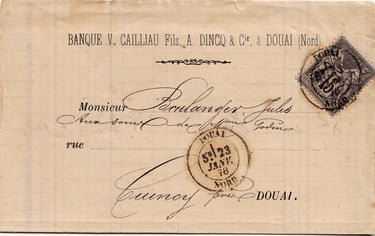 BANQUE V. CAILLIAU Fils, A. DINCQ & Cie, à DOUAI (Nord)
Monsieur Boulanger Jules
Aux soins de
rue
Cuincy près DOUAI.
DOUAI
5E 23
JANV
76
NORD
DOUAI
NORD